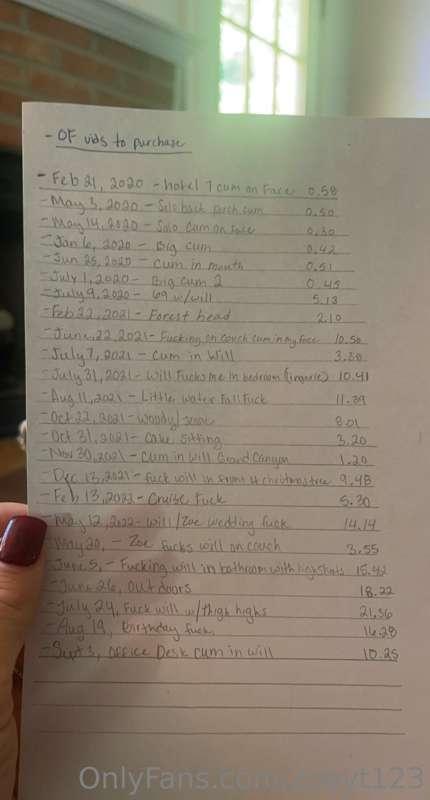 - OF vids to purchase
- Feb 21, 2020 - hotel 7 cum on Face 0.58
- May 3, 2020 - Solo back porch cum 0.50
- May 14, 2020 - Solo cum on face 0.30
- Jan 6, 2020 - Big cum 0.42
- Jun 25, 2020 - Cum in mouth 0.51
- July 1, 2020 - Big cum 2 0.45
- July 9, 2020 - 69 w/will 5.13
- Feb 22, 2021 - Forest head 2.10
- June, 22, 2021 - Fucking on couch cum in my face 10.50
- July 7, 2021 - Cum in Will
- July 31, 2021 - Will Fucks me in bedroom (lingerie) 10.41
- Aug 11, 2021 - Little Water Fall Fuck 11.39
- Oct 22, 2021 - Woody/ 8.01
- Oct 31, 2021 - Cake Sitting 3.20
- Nov 30, 2021 - Cum in Will Grand Canyon 1.20
- Dec 13, 2021 - Fuck will in front of christmas tree 9.48
- Feb 13, 2022 - Cruise Fuck 5.30
- May 12, 2022 - Will/Zoe wedding fuck 14.14
- May 20, - Zoe fucks will on couch 3.55
- June 5, - Fucking will in bathroom with 15.42
- June 26, outdoors 18.22
- July 24, Fuck will w/thigh highs 21.56
- Aug 19, birthday fuck 16.28
- Sept 3, OFFice Desk cum in will 10.25
OnlyFans.com/